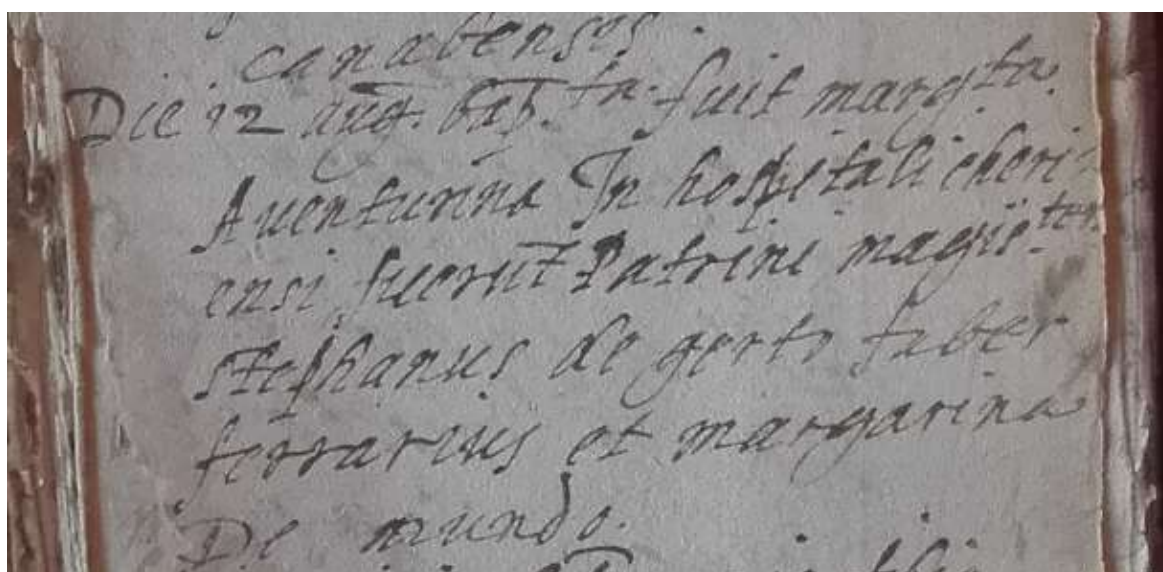 canabensis.
Die 12 aug. bap.ta fuit marg.ta
Aventurina In hospitali cheri-
ensi fuerūt Patrini magis.ter
stephanus de gerto faber
ferrarius et margarina
De mundo.